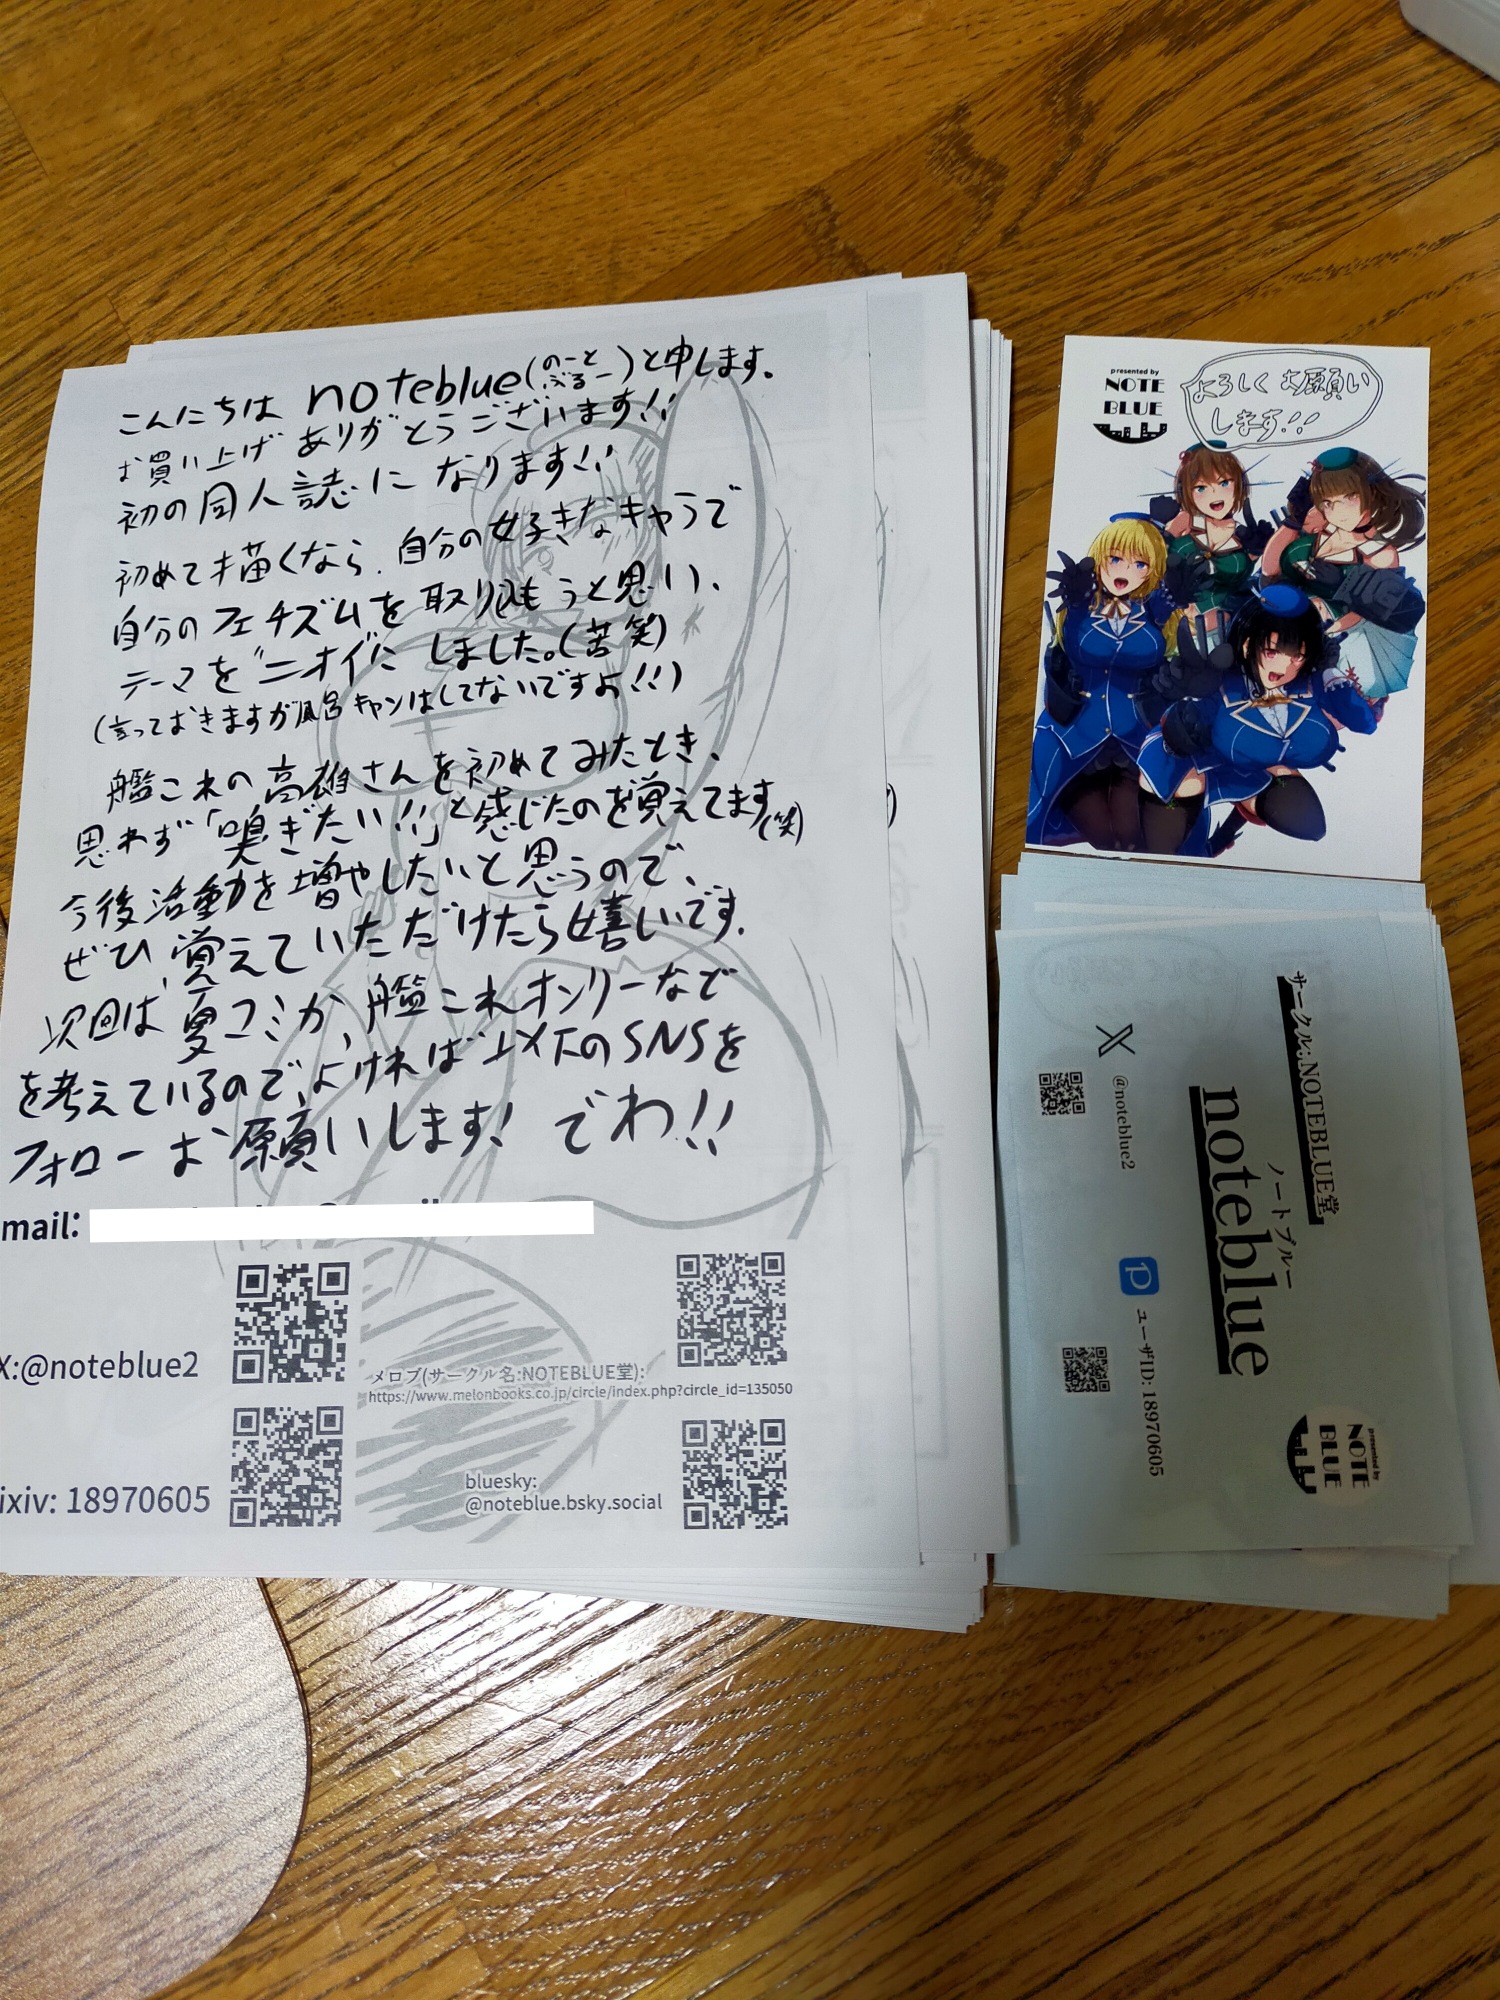 こんにちは noteblue(のーとぶるー)と申します。
お買い上げ ありがとうございます!!
初の同人誌に なります!!
初めて描くなら、自分の好きなキャラで
自分のフェチズムを取り込もうと思い、
テーマを"ニオイ"に しました。(苦笑)
(言っておきますが風呂キャンはしてないですよ!!)
艦これの高雄さんを初めてみたとき、
思わず「嗅ぎたい!!」と感じたのを覚えてます(笑)
今後活動を増やしたいと思うので、
ぜひ、覚えていただけたら嬉しいです.
次回は、夏コミか、艦これオンリーなど
を考えているので、よければ以下のSNSを
フォローお願いします! でわ!!
mail:
X:@noteblue2
メロブ(サークル名:NOTEBLUE堂):
https://www.melonbooks.co.jp/circle/index.php?circle_id=135050
ixiv: 18970605
bluesky:
@noteblue.bsky.social
presented by
NOTE
BLUE
よろしくお願い
します!!
サークル:NOTEBLUE堂
ノートブルー
noteblue
X @noteblue2
ユーザID: 18970605
presented by
NOTE
BLUE